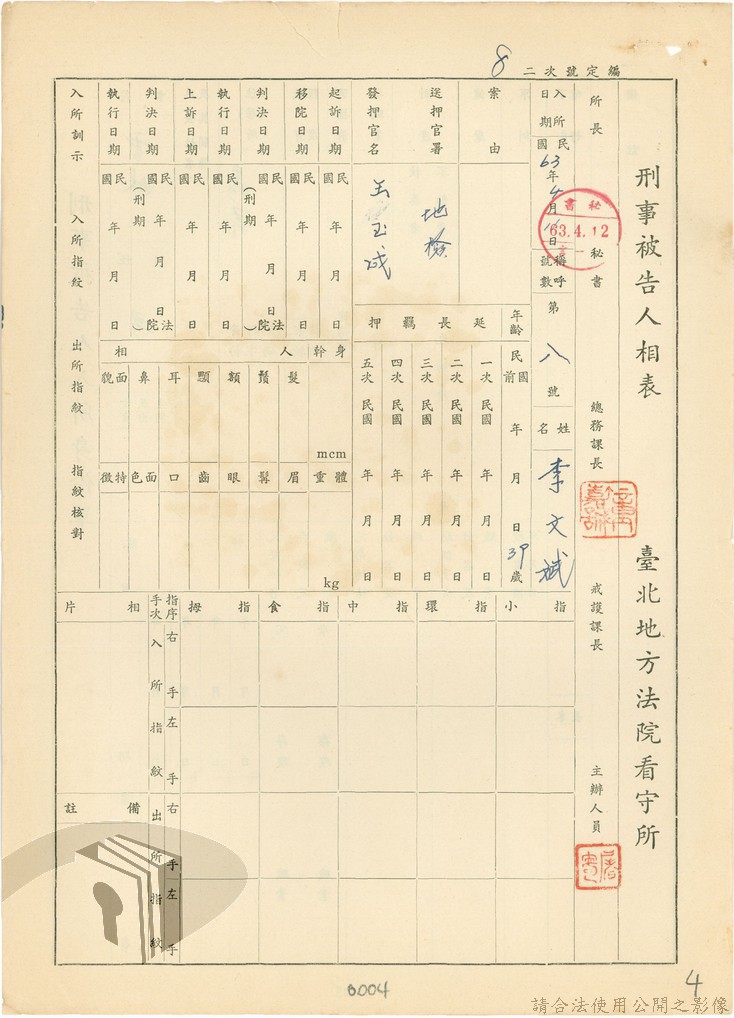 編定號次二 8
刑事被告人相表 臺北地方法院看守所
所長 秘書 總務課長 戒護課長 主辦人員
秘書
63.4.12
入所日期 民國63年4月11日 稱呼號數 第八號 姓名 李文斌
年齡 民國前 年 月 日 39歲
案由
送押官署 地檢
發押官名
延長羈押
一次 民國 年 月 日
二次 民國 年 月 日
三次 民國 年 月 日
四次 民國 年 月 日
五次 民國 年 月 日
起訴日期 民國 年 月 日
移院日期 民國 年 月 日
判決日期 民國 年 月 日 (刑期 法院)
執行日期 民國 年 月 日
上訴日期 民國 年 月 日
判決日期 民國 年 月 日 (刑期 法院)
執行日期 民國 年 月 日
身幹 mcm
體重 kg
人相
髮 鬚 額 顋 耳 鼻 面貌
眉 髯 眼 齒 口 面色 特徵
入所訓示 入所指紋 出所指紋 指紋核對
相片
指序 手次 拇指 食指 中指 環指 小指
入所指紋 右手 左手
出所指紋 右手 左手
備註
0004
4
請合法使用公開之影像